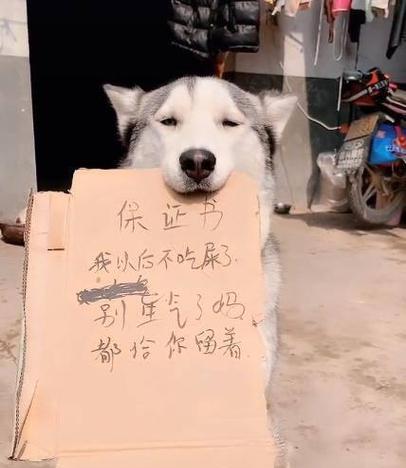 保证书
我以后不吃屎了.
别生气了妈
都给你留着.